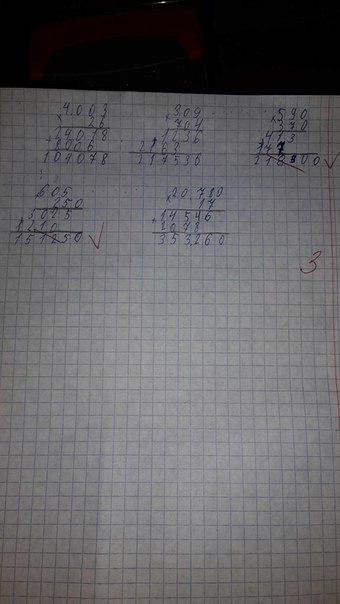 4003
× 26
24018
+ 8006
104078
× 309
704
1236
2163
217536
× 590
370
413
+ 147
218300
× 605
250
3025
+ 1210
151250
× 20780
17
14546
+ 2078
353260
3